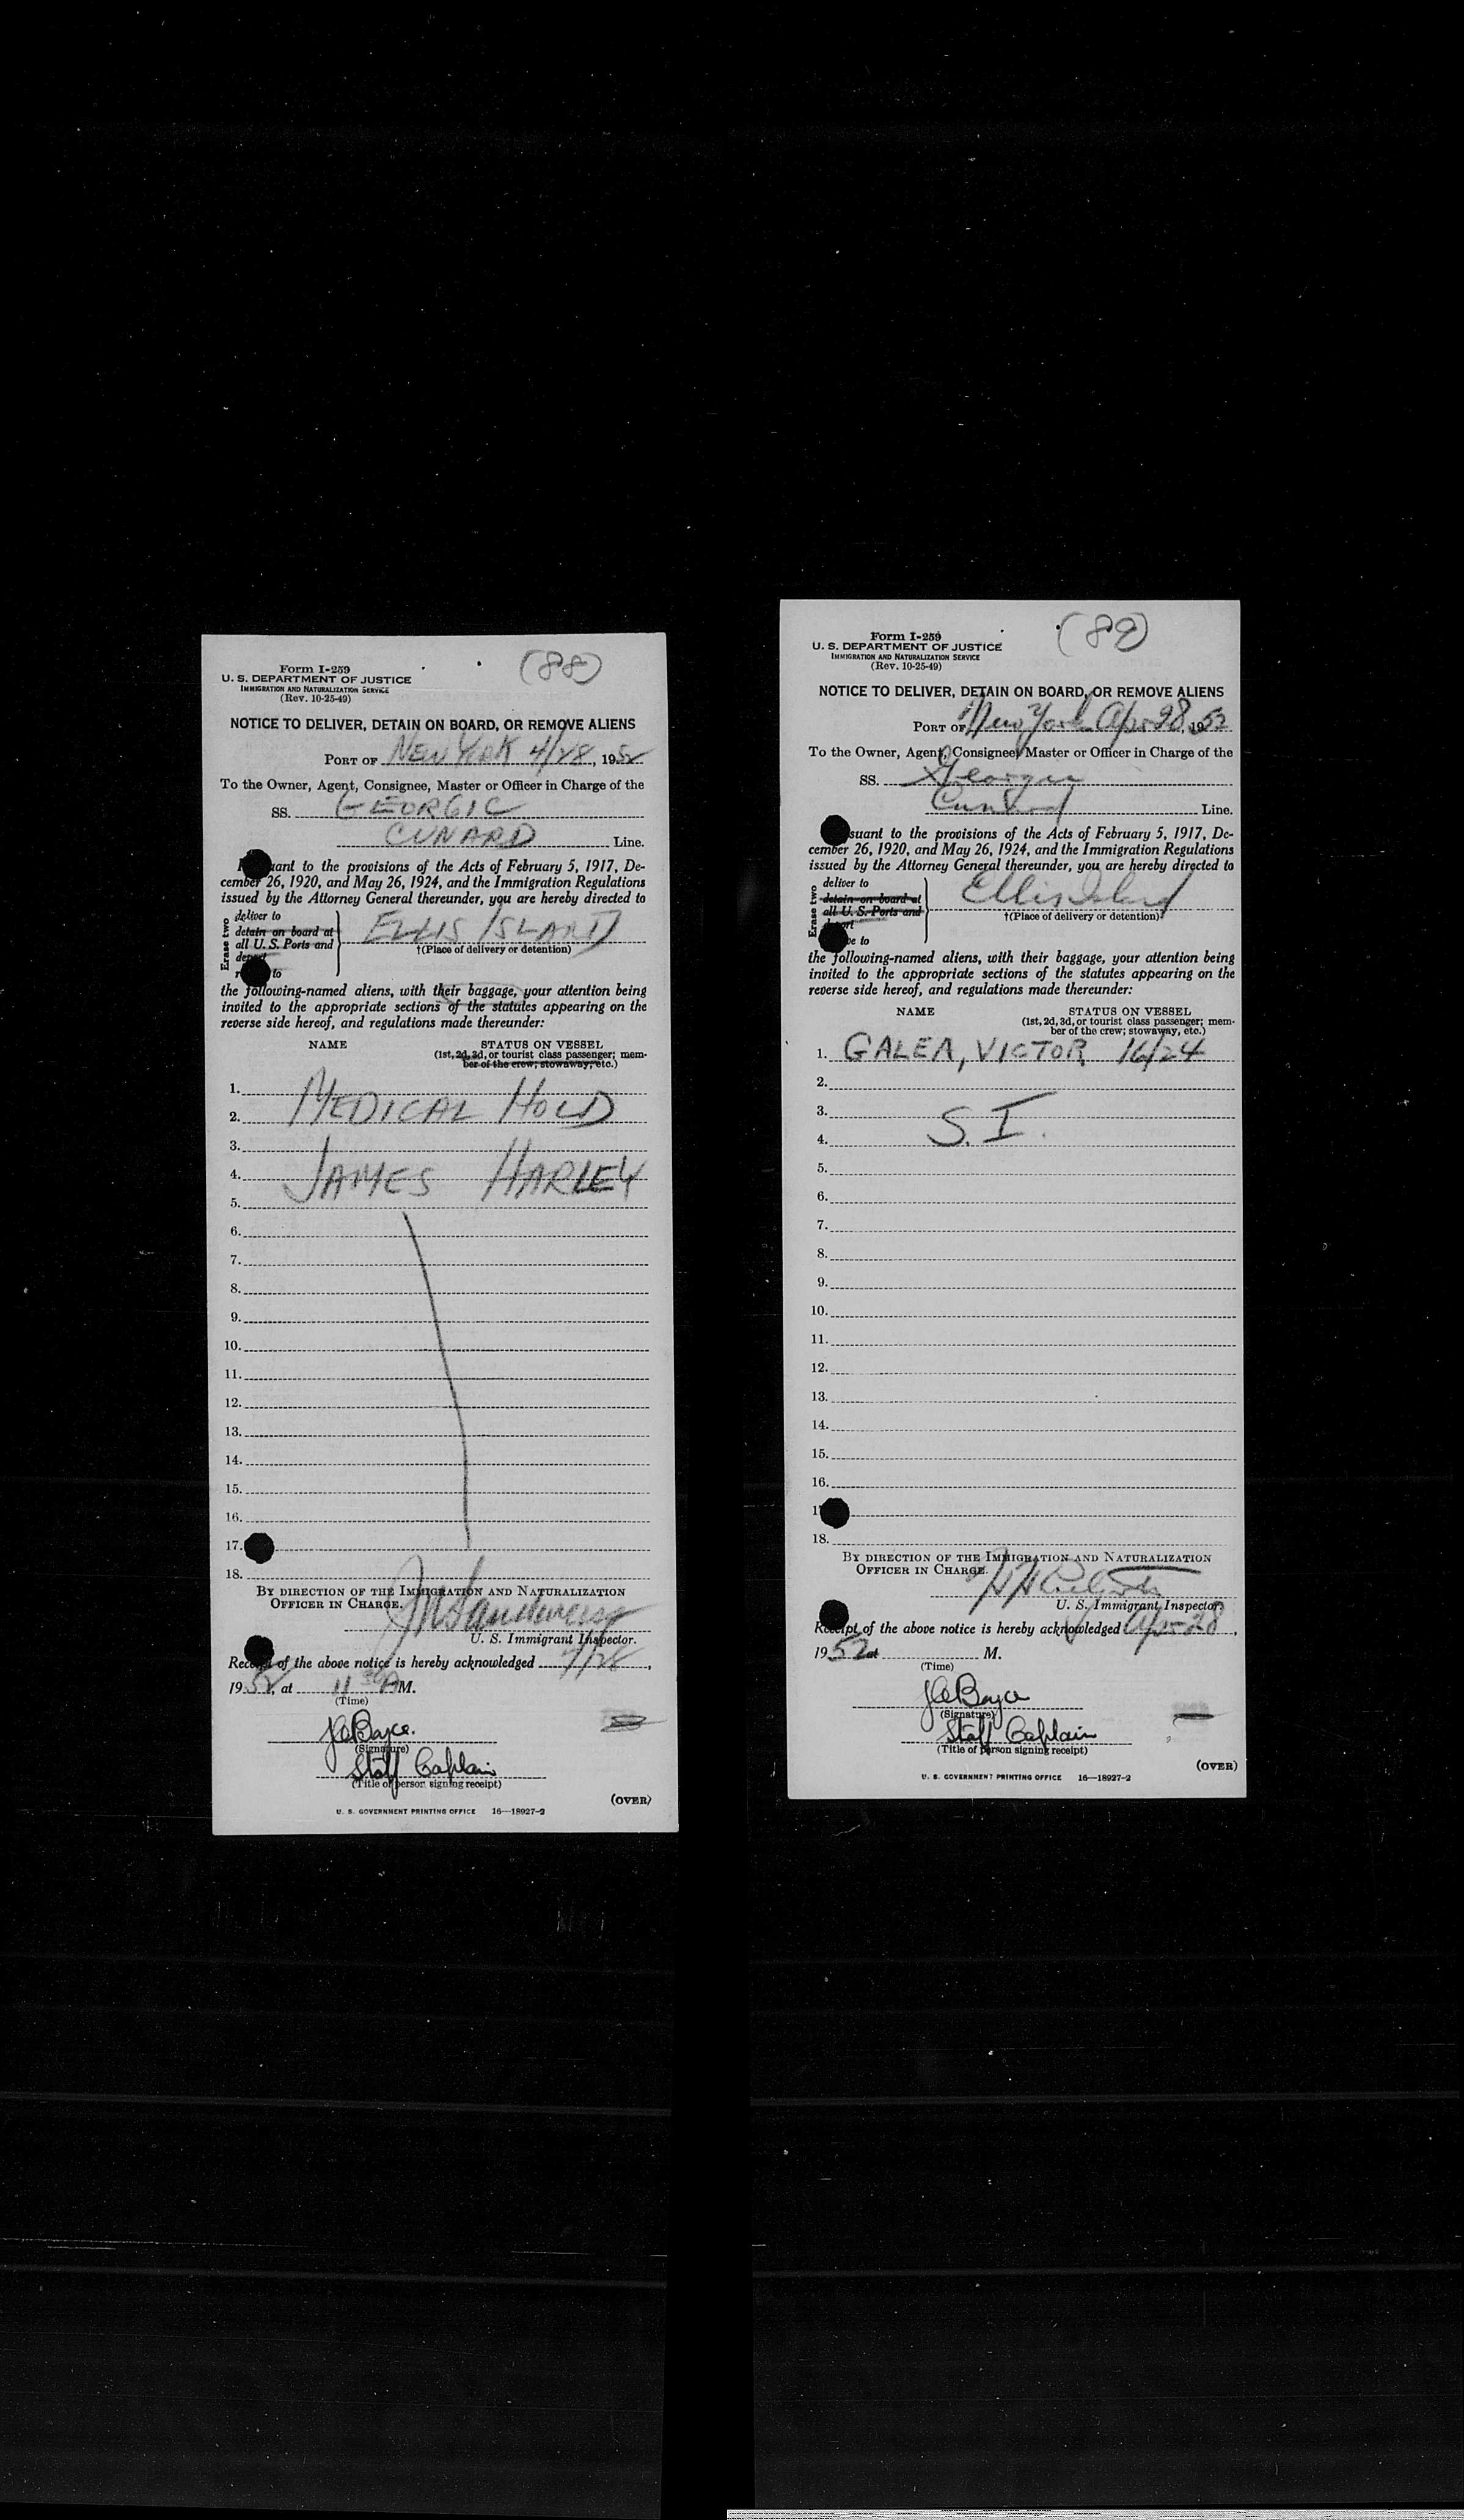 (88)
Form I-259
U. S. DEPARTMENT OF JUSTICE
IMMIGRATION AND NATURALIZATION SERVICE
(Rev. 10-25-49)
NOTICE TO DELIVER, DETAIN ON BOARD, OR REMOVE ALIENS
PORT OF NEW YORK 4/28, 1952
To the Owner, Agent, Consignee, Master or Officer in Charge of the
SS. GEORGIC
CUNARD Line.
to the provisions of the Acts of February 5, 1917, De-
cember 26, 1920, and May 26, 1924, and the Immigration Regulations
issued by the Attorney General thereunder, you are hereby directed to
Erase two
deliver to
detain on board at
all U. S. Ports and
to
ELLIS ISLAND
†(Place of delivery or detention)
the following-named aliens, with their baggage, your attention being
invited to the appropriate sections of the statutes appearing on the
reverse side hereof, and regulations made thereunder:
NAME STATUS ON VESSEL
(1st, 2d, 3d, or tourist class passenger; mem-
ber of the crew; stowaway, etc.)
1.
2. MEDICAL HOLD
3.
4. JAMES HARLEY
5.
6.
7.
8.
9.
10.
11.
12.
13.
14.
15.
16.
17.
18.
BY DIRECTION OF THE IMMIGRATION AND NATURALIZATION
OFFICER IN CHARGE.
U. S. Immigrant Inspector.
Receipt of the above notice is hereby acknowledged 4/28,
1952, at 11 30 A M.
(Time)
(Signature)
Staff Captain
(Title of person signing receipt)
(OVER)
U. S. GOVERNMENT PRINTING OFFICE 16—18927-2
(89)
Form I-259
U. S. DEPARTMENT OF JUSTICE
IMMIGRATION AND NATURALIZATION SERVICE
(Rev. 10-25-49)
NOTICE TO DELIVER, DETAIN ON BOARD, OR REMOVE ALIENS
PORT OF New York Apr 28, 1952
To the Owner, Agent, Consignee, Master or Officer in Charge of the
SS. Georgic
Cunard Line.
to the provisions of the Acts of February 5, 1917, De-
cember 26, 1920, and May 26, 1924, and the Immigration Regulations
issued by the Attorney General thereunder, you are hereby directed to
Erase two
deliver to
detain on board at
all U. S. Ports and
to
Ellis Island
†(Place of delivery or detention)
the following-named aliens, with their baggage, your attention being
invited to the appropriate sections of the statutes appearing on the
reverse side hereof, and regulations made thereunder:
NAME STATUS ON VESSEL
(1st, 2d, 3d, or tourist class passenger; mem-
ber of the crew; stowaway, etc.)
1. GALEA, VICTOR 16/24
2.
3.
4. S. I.
5.
6.
7.
8.
9.
10.
11.
12.
13.
14.
15.
16.
17
18.
BY DIRECTION OF THE IMMIGRATION AND NATURALIZATION
OFFICER IN CHARGE.
U. S. Immigrant Inspector.
Receipt of the above notice is hereby acknowledged Apr 28,
1952 at M.
(Time)
(Signature)
Staff Captain
(Title of person signing receipt)
(OVER)
U. S. GOVERNMENT PRINTING OFFICE 16—18927-2